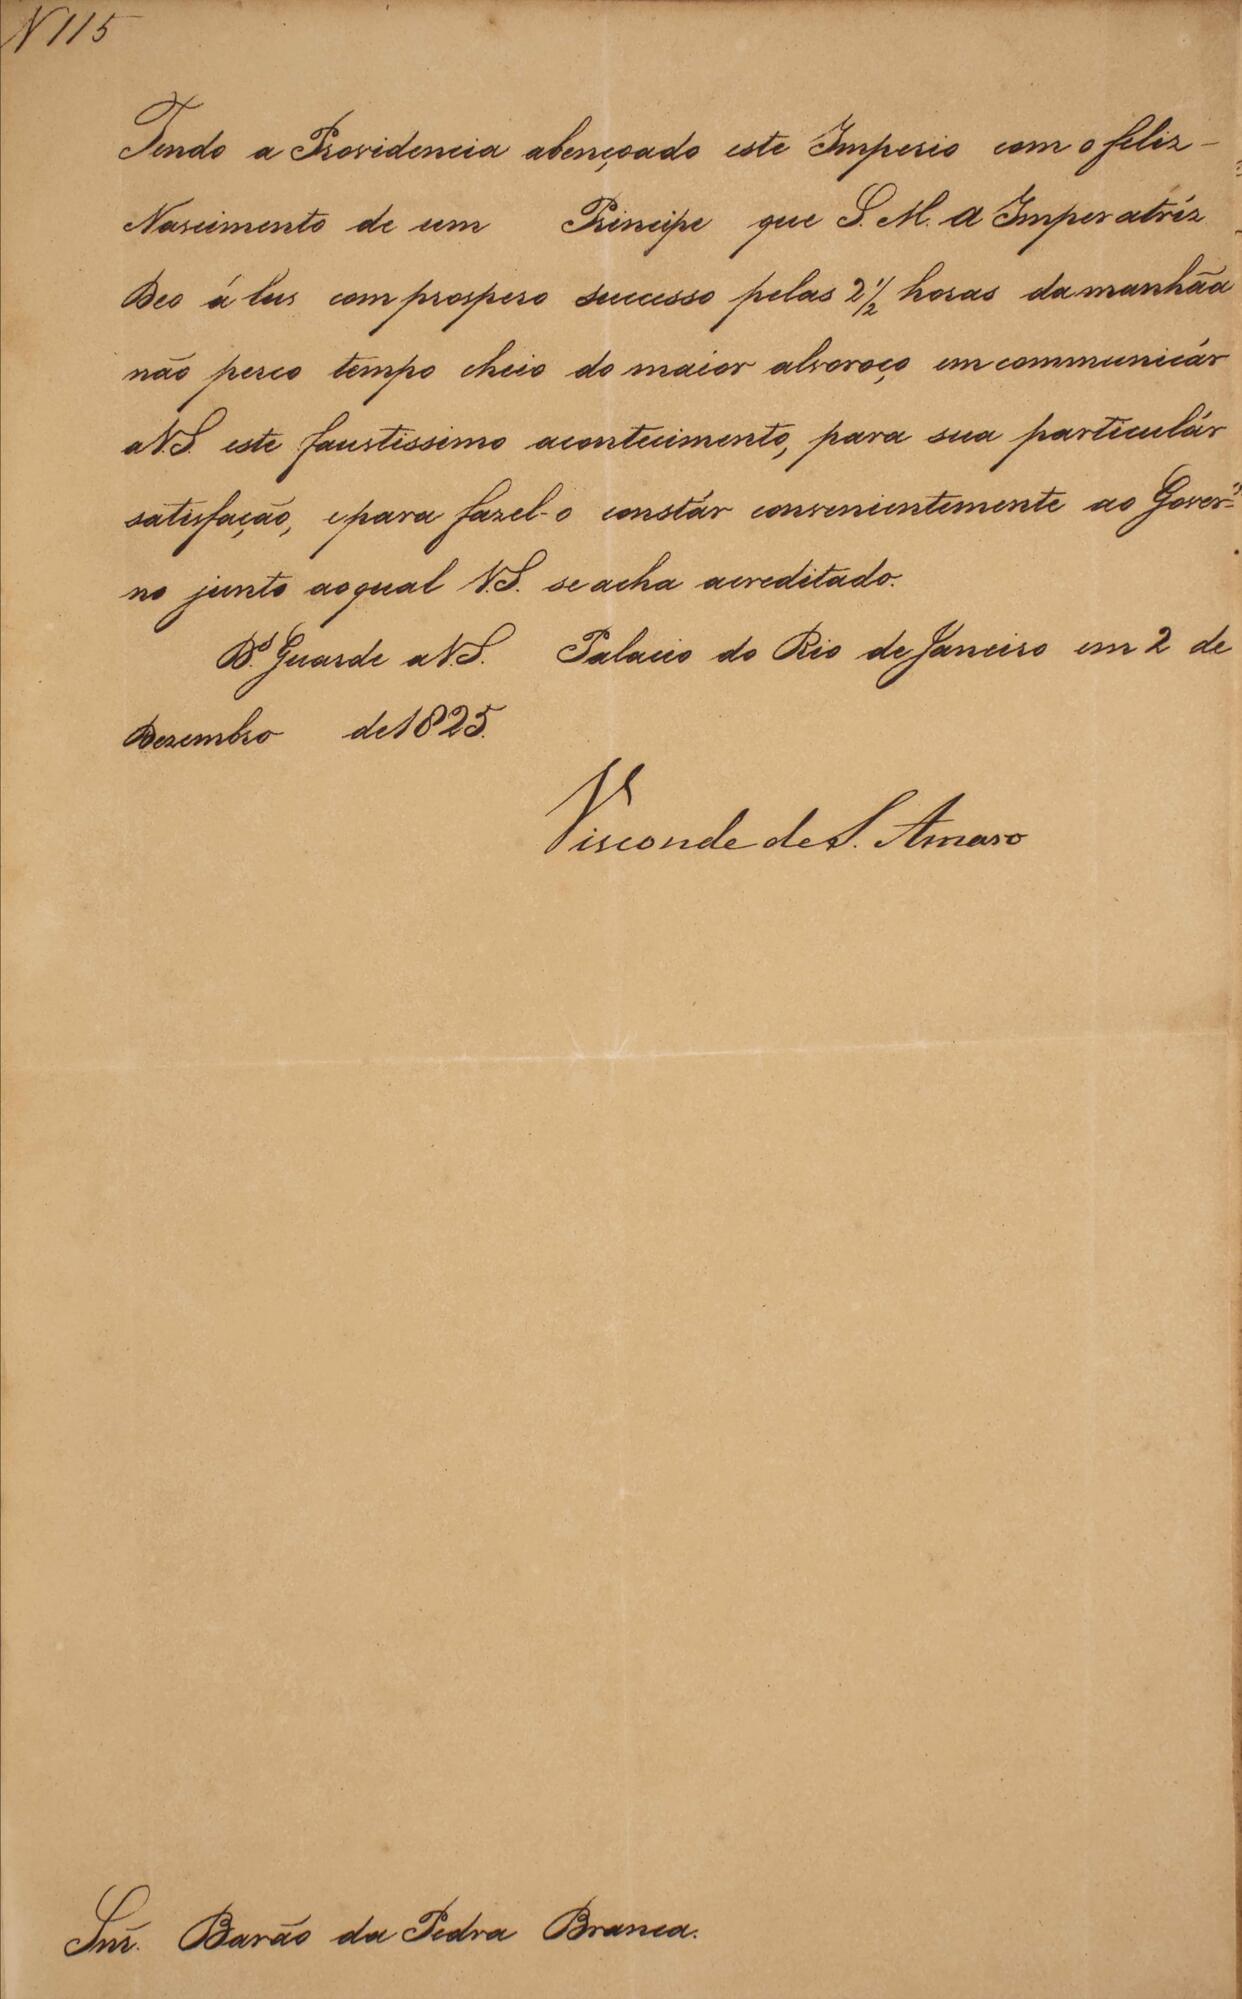 N 115
Tendo a Providencia abençoado este Imperio com o feliz -
Nascimento de um Principe que S. M. a Imperatríz
Deo á lus com prospero successo pelas 2 1/2 horas da manhãa
não perco tempo cheio do maior alvoroço em communicár
a V.S. este faustissimo acontecimento, para sua particulár
satisfação, e para fazel-o constár convenientemente ao Gover-
no junto ao qual V.S. se acha acreditado.
D.s Guarde a V.S. Palacio do Rio de Janeiro em 2 de
Dezembro de 1825.
Visconde de S. Amaro
Snr. Barão da Pedra Branca.